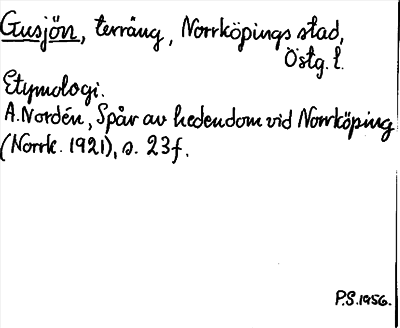 Gusjön, terräng, Norrköpings stad,
Östg. l.
Etymologi.
A. Nordén, Spår av hedendom vid Norrköping
(Norrk. 1921), s. 23f.
P.S. 1956.